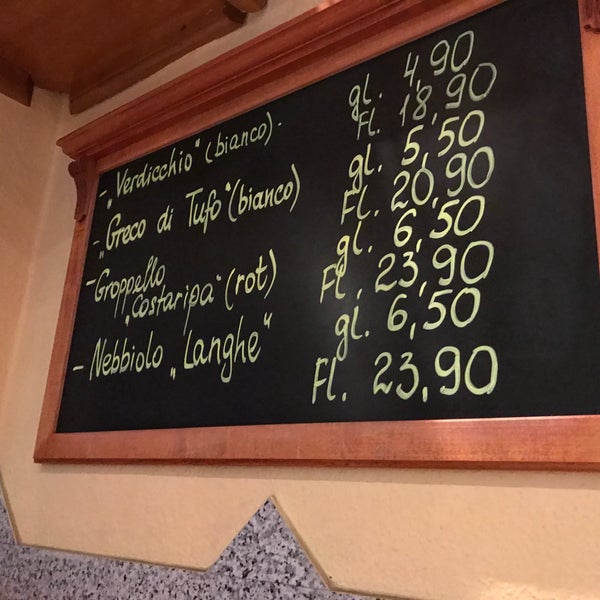 - „Verdicchio“ (bianco). gl. 4,90
Fl. 18,90
- „Greco di Tufo“ (bianco) gl. 5,50
Fl. 20,90
- Groppello gl. 6,50
„Costaripa“ (rot) Fl. 23,90
- Nebbiolo „Langhe“ gl. 6,50
Fl. 23,90